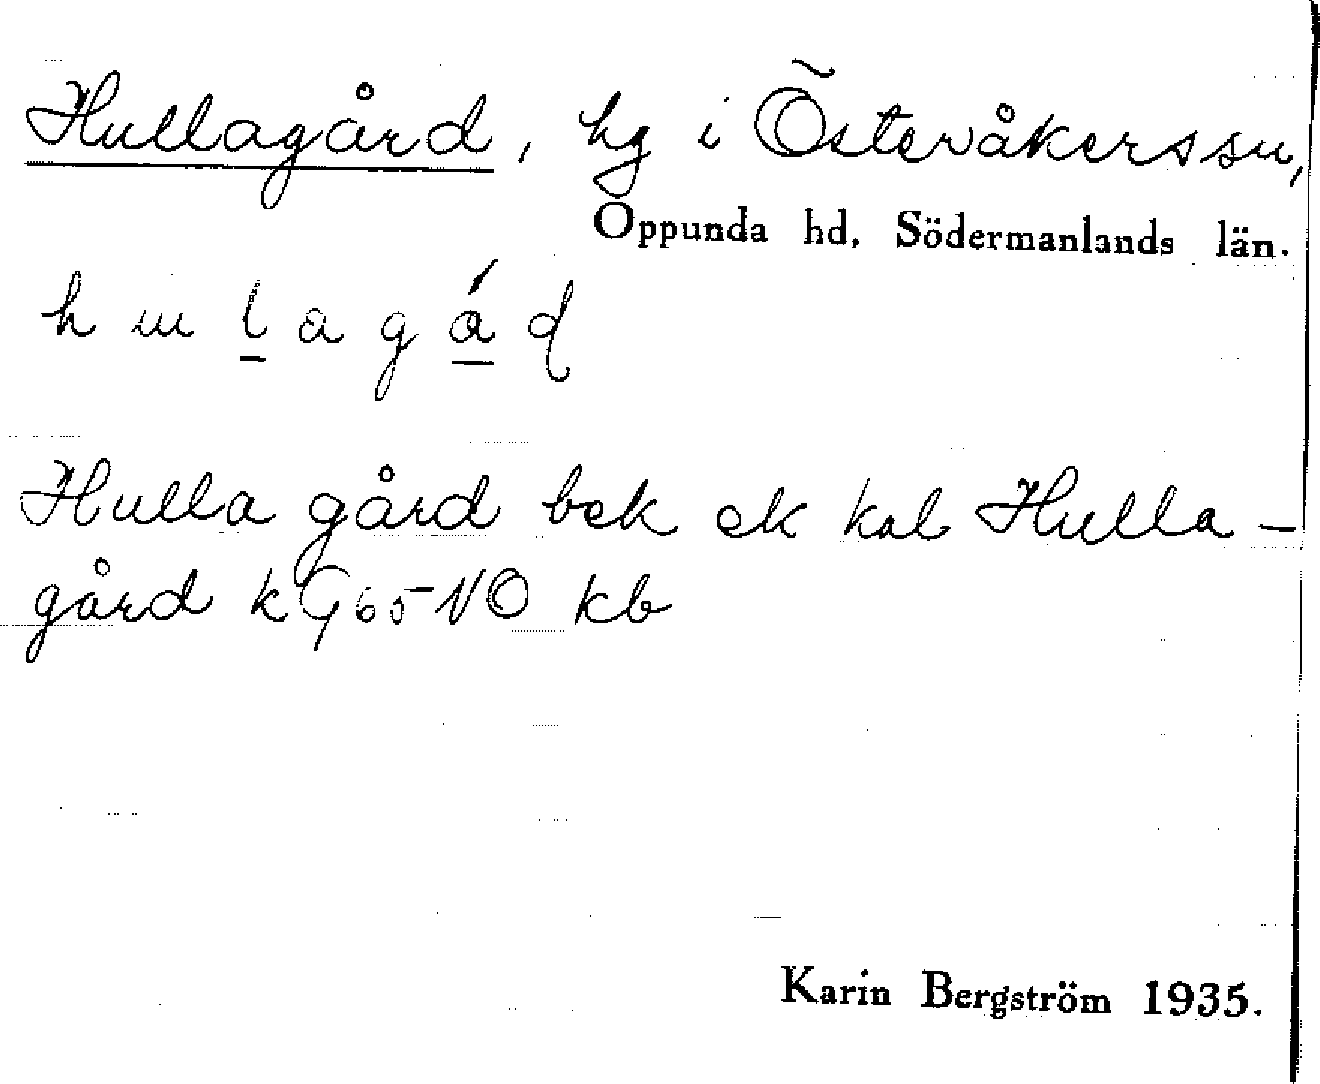 Hullagård, hg i Österåkers sn,
Oppunda hd, Södermanlands län.
h u l a g á d
Hulla gård bek ek kal Hulla-
gård k G65 NO kb
Karin Bergström 1935.